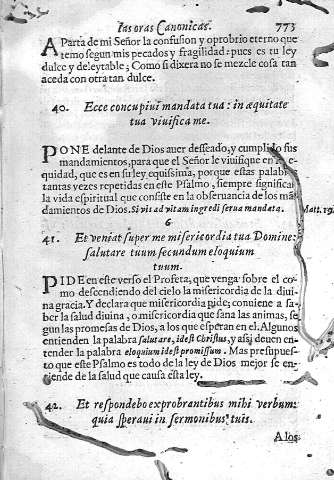 las oras Canonicas. 773
APARTA de mi Señor la confusion y oprobrio eterno que
temo segun mis pecados y fragilidad: pues es tu ley
dulce y deleytable; Como si dixera no se mezcle cosa tan
aceda con otra tan dulce.
40. Ecce concupiui mandata tua: in æquitate
tua viuifica me.
PONE delante de Dios auer desseado, y cumplido sus
mandamientos, para que el Señor le viuifique en
equidad, que es en su ley equissima, porque estas palabras
tantas vezes repetidas en este Psalmo, siempre significan
la vida espiritual que consiste en la obseruancia de los man
damientos de Dios. Si vis ad vitam ingredi serua mandata. Matt. 19
6
41. Et veniat super me misericordia tua Domine:
salutare tuum secundum eloquium
tuum.
PIDE en este verso el Profeta, que venga sobre el co-
mo descendiendo del cielo la misericordia de la diui-
na gracia. Y declara que misericordia pide; conuiene a sa-
ber la salud diuina, o misericordia que sana las animas, se
gun las promesas de Dios, a los que esperan en el. Algunos
entienden la palabra salutare, idest Christus, y assi deuen en-
tender la palabra eloquium idest promissum. Mas presupues-
to que este Psalmo es todo de la ley de Dios mejor se en-
tiende de la salud que causa esta ley.
42. Et respondebo exprobrantibus mihi verbum:
quia speraui in sermonibus tuis.
A los